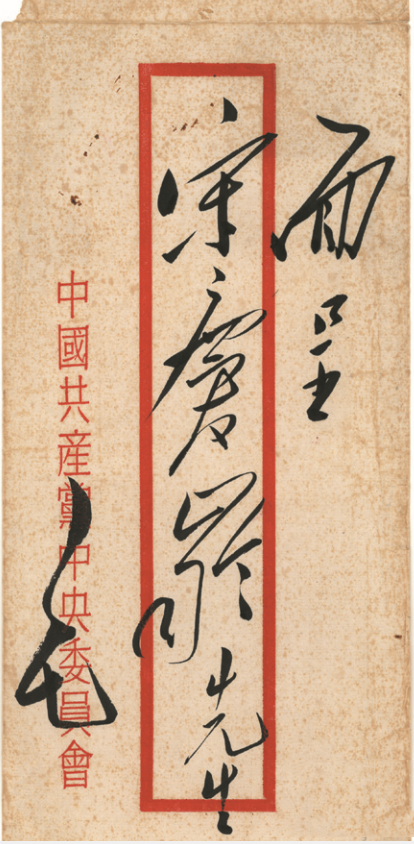 面呈
宋慶齡先生
中國共産黨中央委員會
毛